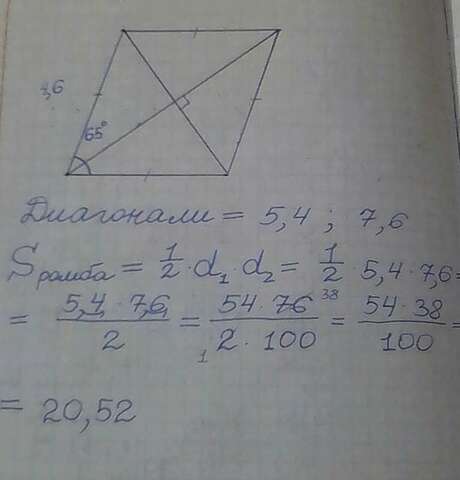 4,6
65°
Диагонали = 5,4 ; 7,6
Sромба = 1/2 · d₁ · d₂ = 1/2 · 5,4 · 7,6 =
= 5,4 · 7,6 / 2 = 54 · 76 38 / 1 2 · 100 = 54 · 38 / 100 =
= 20,52